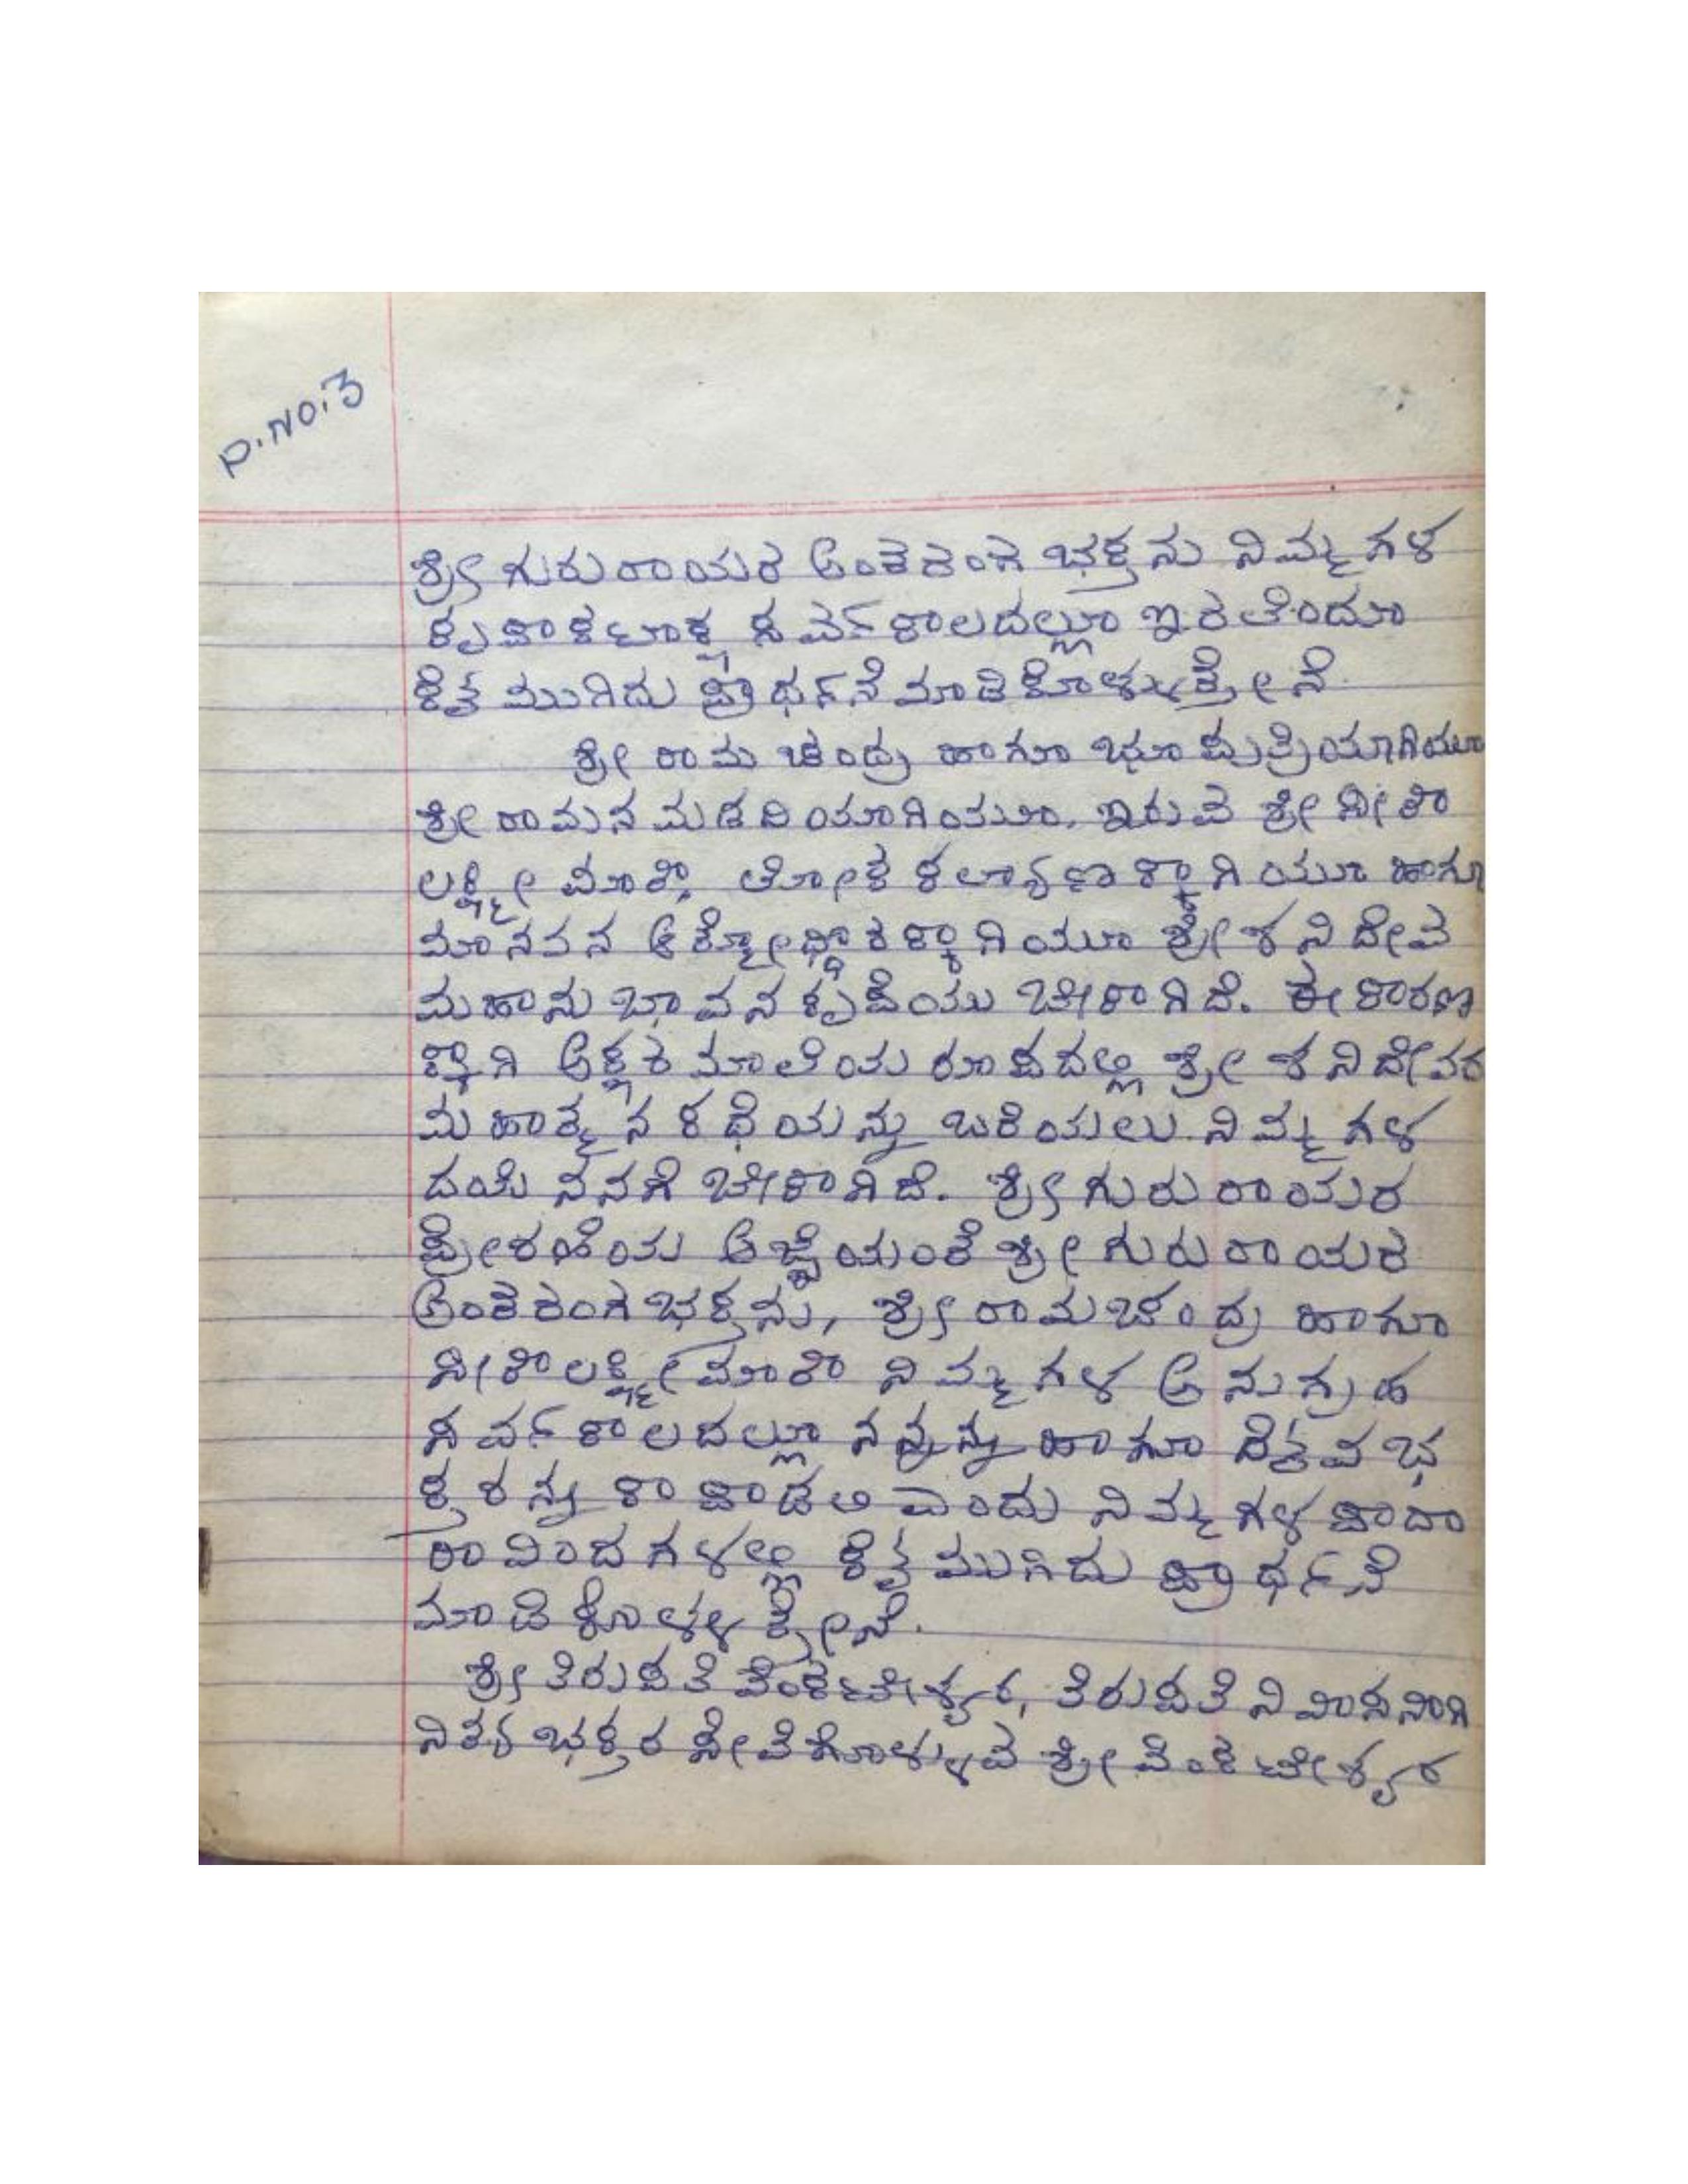 P.NO:3
ಶ್ರೀ ಗುರುರಾಯರ ಅಂತರಂಗ ಭಕ್ತನು ನಿಮ್ಮಗಳ
ಕೃಪಾಕಟಾಕ್ಷ ಸರ್ವಕಾಲದಲ್ಲೂ ಇರಲೆಂದೂ
ಕೈ ಮುಗಿದು ಪ್ರಾರ್ಥನೆ ಮಾಡಿಕೊಳ್ಳುತ್ತೇನೆ.
ಶ್ರೀ ರಾಮ ಚಂದ್ರ ಹಾಗೂ ಭೂ ಪುತ್ರಿಯಾಗಿಯೂ
ಶ್ರೀ ರಾಮನ ಮಡದಿಯಾಗಿಯೂ, ಇರುವ ಶ್ರೀ ಸೀತಾ
ಲಕ್ಷ್ಮೀ ಮಾತಾ, ಲೋಕ ಕಲ್ಯಾಣಕ್ಕಾಗಿಯೂ ಹಾಗೂ
ಮಾನವನ ಆತ್ಮೋದ್ಧಾರಕ್ಕಾಗಿಯೂ ಶ್ರೀ ಶನಿದೇವ
ಮಹಾನುಭಾವನ ಕೃಪೆಯು ಬೇಕಾಗಿದೆ. ಈ ಕಾರಣ
ಕ್ಕಾಗಿ ಅಕ್ಷರ ಮಾಲೆಯ ರೂಪದಲ್ಲಿ ಶ್ರೀ ಶನಿದೇವರ
ಮಹಾತ್ಮನ ಕಥೆಯನ್ನು ಬರೆಯಲು ನಿಮ್ಮಗಳ
ದಯೆ ನನಗೆ ಬೇಕಾಗಿದೆ. ಶ್ರೀ ಗುರುರಾಯರ
ಪ್ರೇರಣೆಯ ಆಜ್ಞೆಯಂತೆ ಶ್ರೀ ಗುರುರಾಯರ
ಅಂತರಂಗ ಭಕ್ತನು, ಶ್ರೀ ರಾಮಚಂದ್ರ ಹಾಗೂ
ಸೀತಾಲಕ್ಷ್ಮೀ ಮಾತಾ ನಿಮ್ಮಗಳ ಅನುಗ್ರಹ
ಸರ್ವಕಾಲದಲ್ಲೂ ನನ್ನನ್ನು ಹಾಗೂ ದೈವ ಭ
ಕ್ತರನ್ನು ಕಾಪಾಡಲಿ ಎಂದು ನಿಮ್ಮಗಳ ಪಾದಾ
ರಾವಿಂದಗಳಲ್ಲಿ ಕೈ ಮುಗಿದು ಪ್ರಾರ್ಥನೆ
ಮಾಡಿಕೊಳ್ಳುತ್ತೇನೆ.
ಶ್ರೀ ತಿರುಪತಿ ವೆಂಕಟೇಶ್ವರ, ತಿರುಪತಿ ನಿವಾಸನಾಗಿ
ನಿತ್ಯ ಭಕ್ತರ ಸೇವೆಗೊಳ್ಳುವ ಶ್ರೀ ವೆಂಕಟೇಶ್ವರ